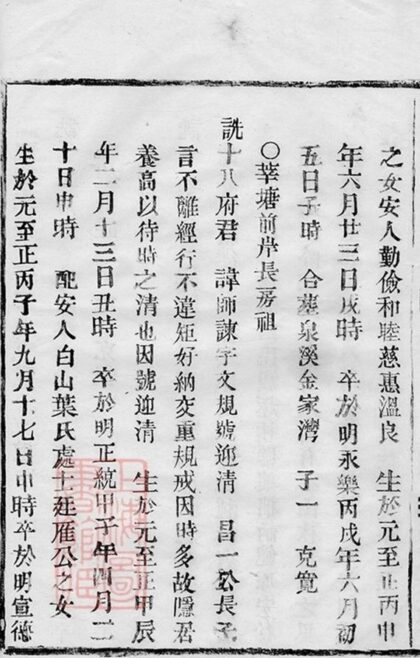 之女安人勤儉和睦慈惠溫良 生於元至正丙申
年六月廿三日戌時 卒於明永樂丙戌年六月初
五日子時 合墓泉溪金家灣 子一 克寬
〇莘塘前岸長房祖
詵十八府君 諱師諫字文規號迎清 昌一公長子
言不離經行不違矩好納交重規戒因時多故隱居
養高以待時之清也因號迎清 生於元至正甲辰
年二月十三日丑時 卒於明正統甲子年四月二
十日申時 配安人白山葉氏處士廷雁公之女
生於元至正丙子年九月十七日申時卒於明宣德